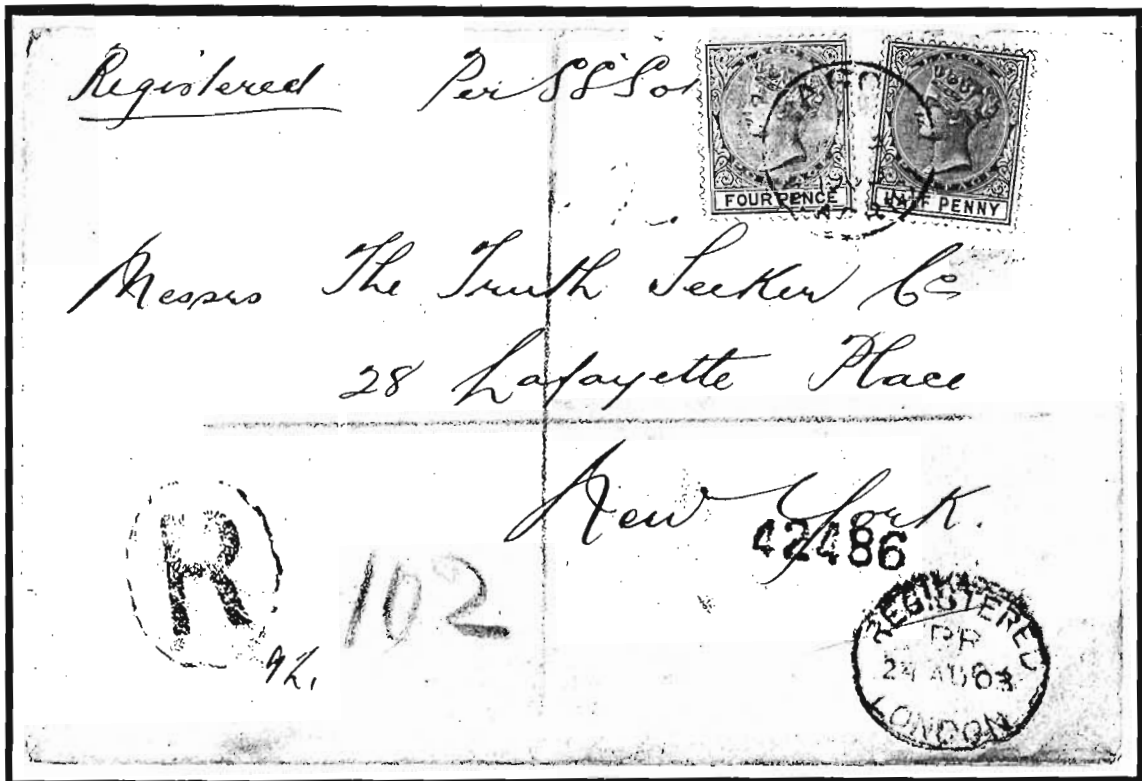 Registered Per SS
FOUR PENCE
HALF PENNY
Messrs The Truth Seeker Co
28 Lafayette Place
New York.
42486
R
102
REGISTERED
24 AU 03
LONDON